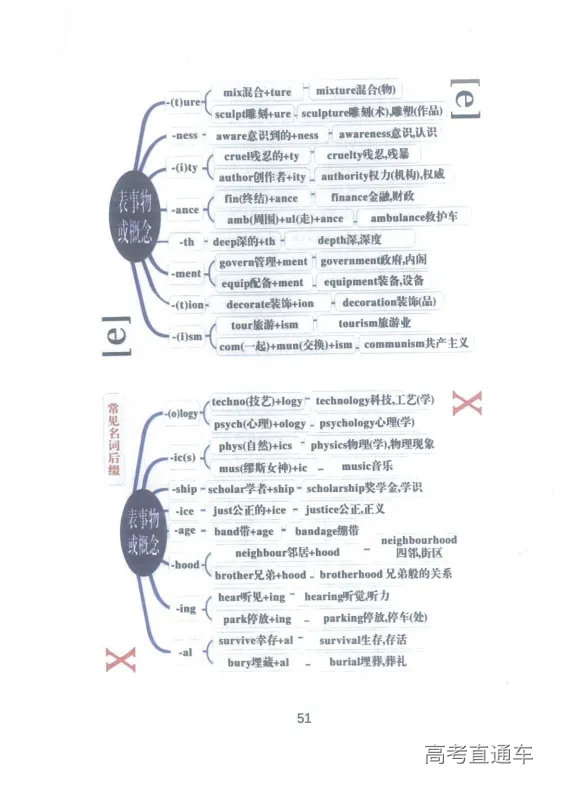 [e]
表事物
或概念
-(t)ure
mix混合+ture - mixture混合(物)
sculpt雕刻+ure - sculpture雕刻(术),雕塑(作品)
-ness
aware意识到的+ness - awareness意识,认识
-(i)ty
cruel残忍的+ty - cruelty残忍,残暴
author创作者+ity - authority权力(机构),权威
-ance
fin(终结)+ance - finance金融,财政
amb(周围)+ul(走)+ance - ambulance救护车
-th
deep深的+th - depth深,深度
-ment
govern管理+ment - government政府,内阁
equip配备+ment - equipment装备,设备
-(t)ion
decorate装饰+ion - decoration装饰(品)
-(i)sm
tour旅游+ism - tourism旅游业
com(一起)+mun(交换)+ism - communism共产主义
[e]
常见名词后缀
X
表事物
或概念
-(o)logy
techno(技艺)+logy - technology科技,工艺(学)
psych(心理)+ology - psychology心理(学)
-ic(s)
phys(自然)+ics - physics物理(学),物理现象
mus(缪斯女神)+ic - music音乐
-ship
scholar学者+ship - scholarship奖学金,学识
-ice
just公正的+ice - justice公正,正义
-age
band带+age - bandage绷带
-hood
neighbour邻居+hood - neighbourhood
四邻,街区
brother兄弟+hood - brotherhood 兄弟般的关系
-ing
hear听见+ing - hearing听觉,听力
park停放+ing - parking停放,停车(处)
-al
survive幸存+al - survival生存,存活
bury埋藏+al - burial埋葬,葬礼
X
51
高考直通车